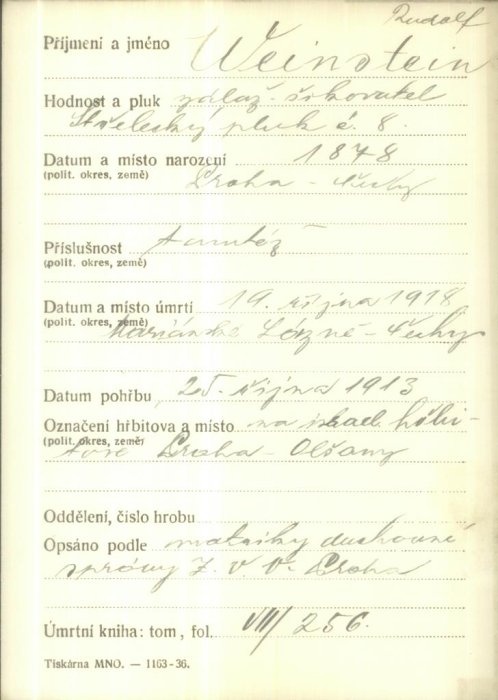 Rudolf
Příjmení a jméno Weinstein
Hodnost a pluk zálož. šikovatel
Střelecký pluk č. 8.
Datum a místo narození 1878
(polit. okres, země) Praha - Čechy
Příslušnost tamtéž
(polit. okres, země)
Datum a místo úmrtí 19. října 1918
(polit. okres, země) Mariánské Lázně - Čechy
Datum pohřbu 25. října 1913
Označení hřbitova a místo na israel. hřbi-
(polit. okres, země) tově Praha - Olšany
Oddělení, číslo hrobu
Opsáno podle matriky duchovní
správy Z. V. V. Praha
Úmrtní kniha: tom, fol. VII/256.
Tiskárna MNO. — 1163-36.